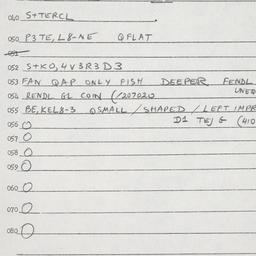 040 S+TERCL
050 P3TE, L8-NE QFLAT
051
052 S+KO, 4V3R3D3
053 FAN QAP ONLY FISH DEEPER FENDL
054 RENDL GL COIN (1207020 UNEQ
055 BE, KEL8-3 QSMALL / SHAPED / LEFT IMPR
056 D1 TEJ G (410
057
058
059
060
070
080